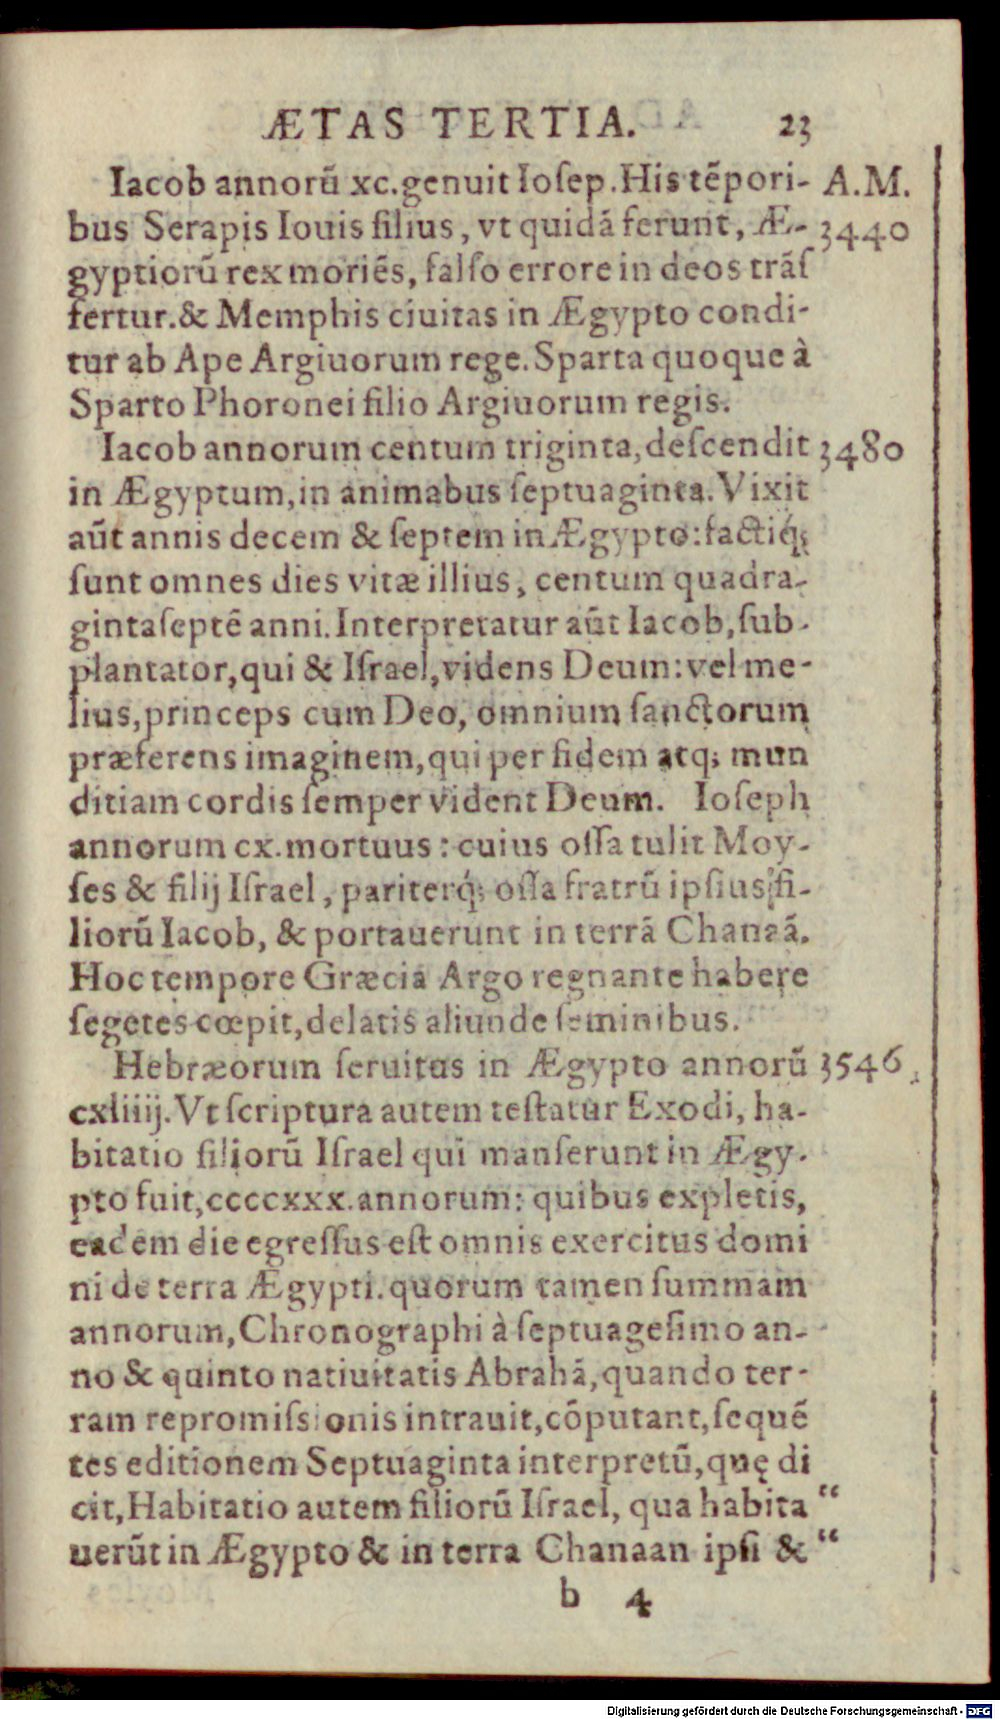 ÆTAS TERTIA. 23
Iacob annorũ xc. genuit Ioſep. His tẽpori- A.M.
bus Serapis Iouis filius, vt quidã ferunt, Æ- 3440
gyptiorũ rex moriẽs, falſo errore in deos trãſ
fertur. & Memphis ciuitas in Ægypto condi-
tur ab Ape Argiuorum rege. Sparta quoque à
Sparto Phoronei filio Argiuorum regis.
Iacob annorum centum triginta, deſcendit 3480
in Ægyptum, in animabus ſeptuaginta. Vixit
aũt annis decem & ſeptem in Ægypto: factiq́;
ſunt omnes dies vitæ illius, centum quadra-
gintaſeptẽ anni. Interpretatur aũt Iacob, ſub-
plantator, qui & Iſrael, videns Deum: vel me-
lius, princeps cum Deo, omnium ſanctorum
præferens imaginem, qui per fidem atq; mun
ditiam cordis ſemper vident Deum. Ioſeph
annorum cx. mortuus: cuius oſſa tulit Moy-
ſes & filij Iſrael, pariterq́; oſſa fratrũ ipſius fi-
liorũ Iacob, & portauerunt in terrã Chanaã.
Hoc tempore Græcia Argo regnante habere
ſegetes cœpit, delatis aliunde ſeminibus.
Hebræorum ſeruitus in Ægypto annorũ 3546
cxliiij. Vt ſcriptura autem teſtatur Exodi, ha-
bitatio filiorũ Iſrael qui manſerunt in Ægy-
pto fuit, ccccxxx. annorum: quibus expletis,
eadem die egreſſus eſt omnis exercitus domi
ni de terra Ægypti. quorum tamen ſummam
annorum, Chronographi à ſeptuageſimo an-
no & quinto natiuitatis Abrahã, quando ter-
ram repromiſsionis intrauit, cõputant, ſequẽ
tes editionem Septuaginta interpretũ, quę di
cit, Habitatio autem filiorũ Iſrael, qua habita “
uerũt in Ægypto & in terra Chanaan ipſi & “
b 4
Digitalisierung gefördert durch die Deutsche Forschungsgemeinschaft - DFG